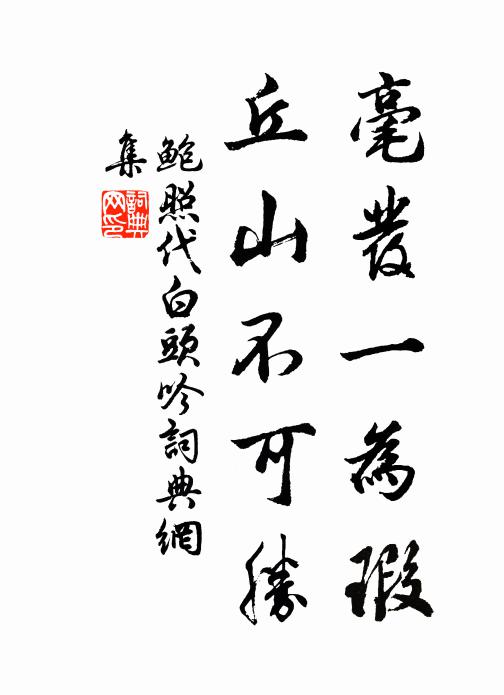 毫發一為瑕
丘山不可勝
鮑照代白頭吟詞典網
集
詞典
網印